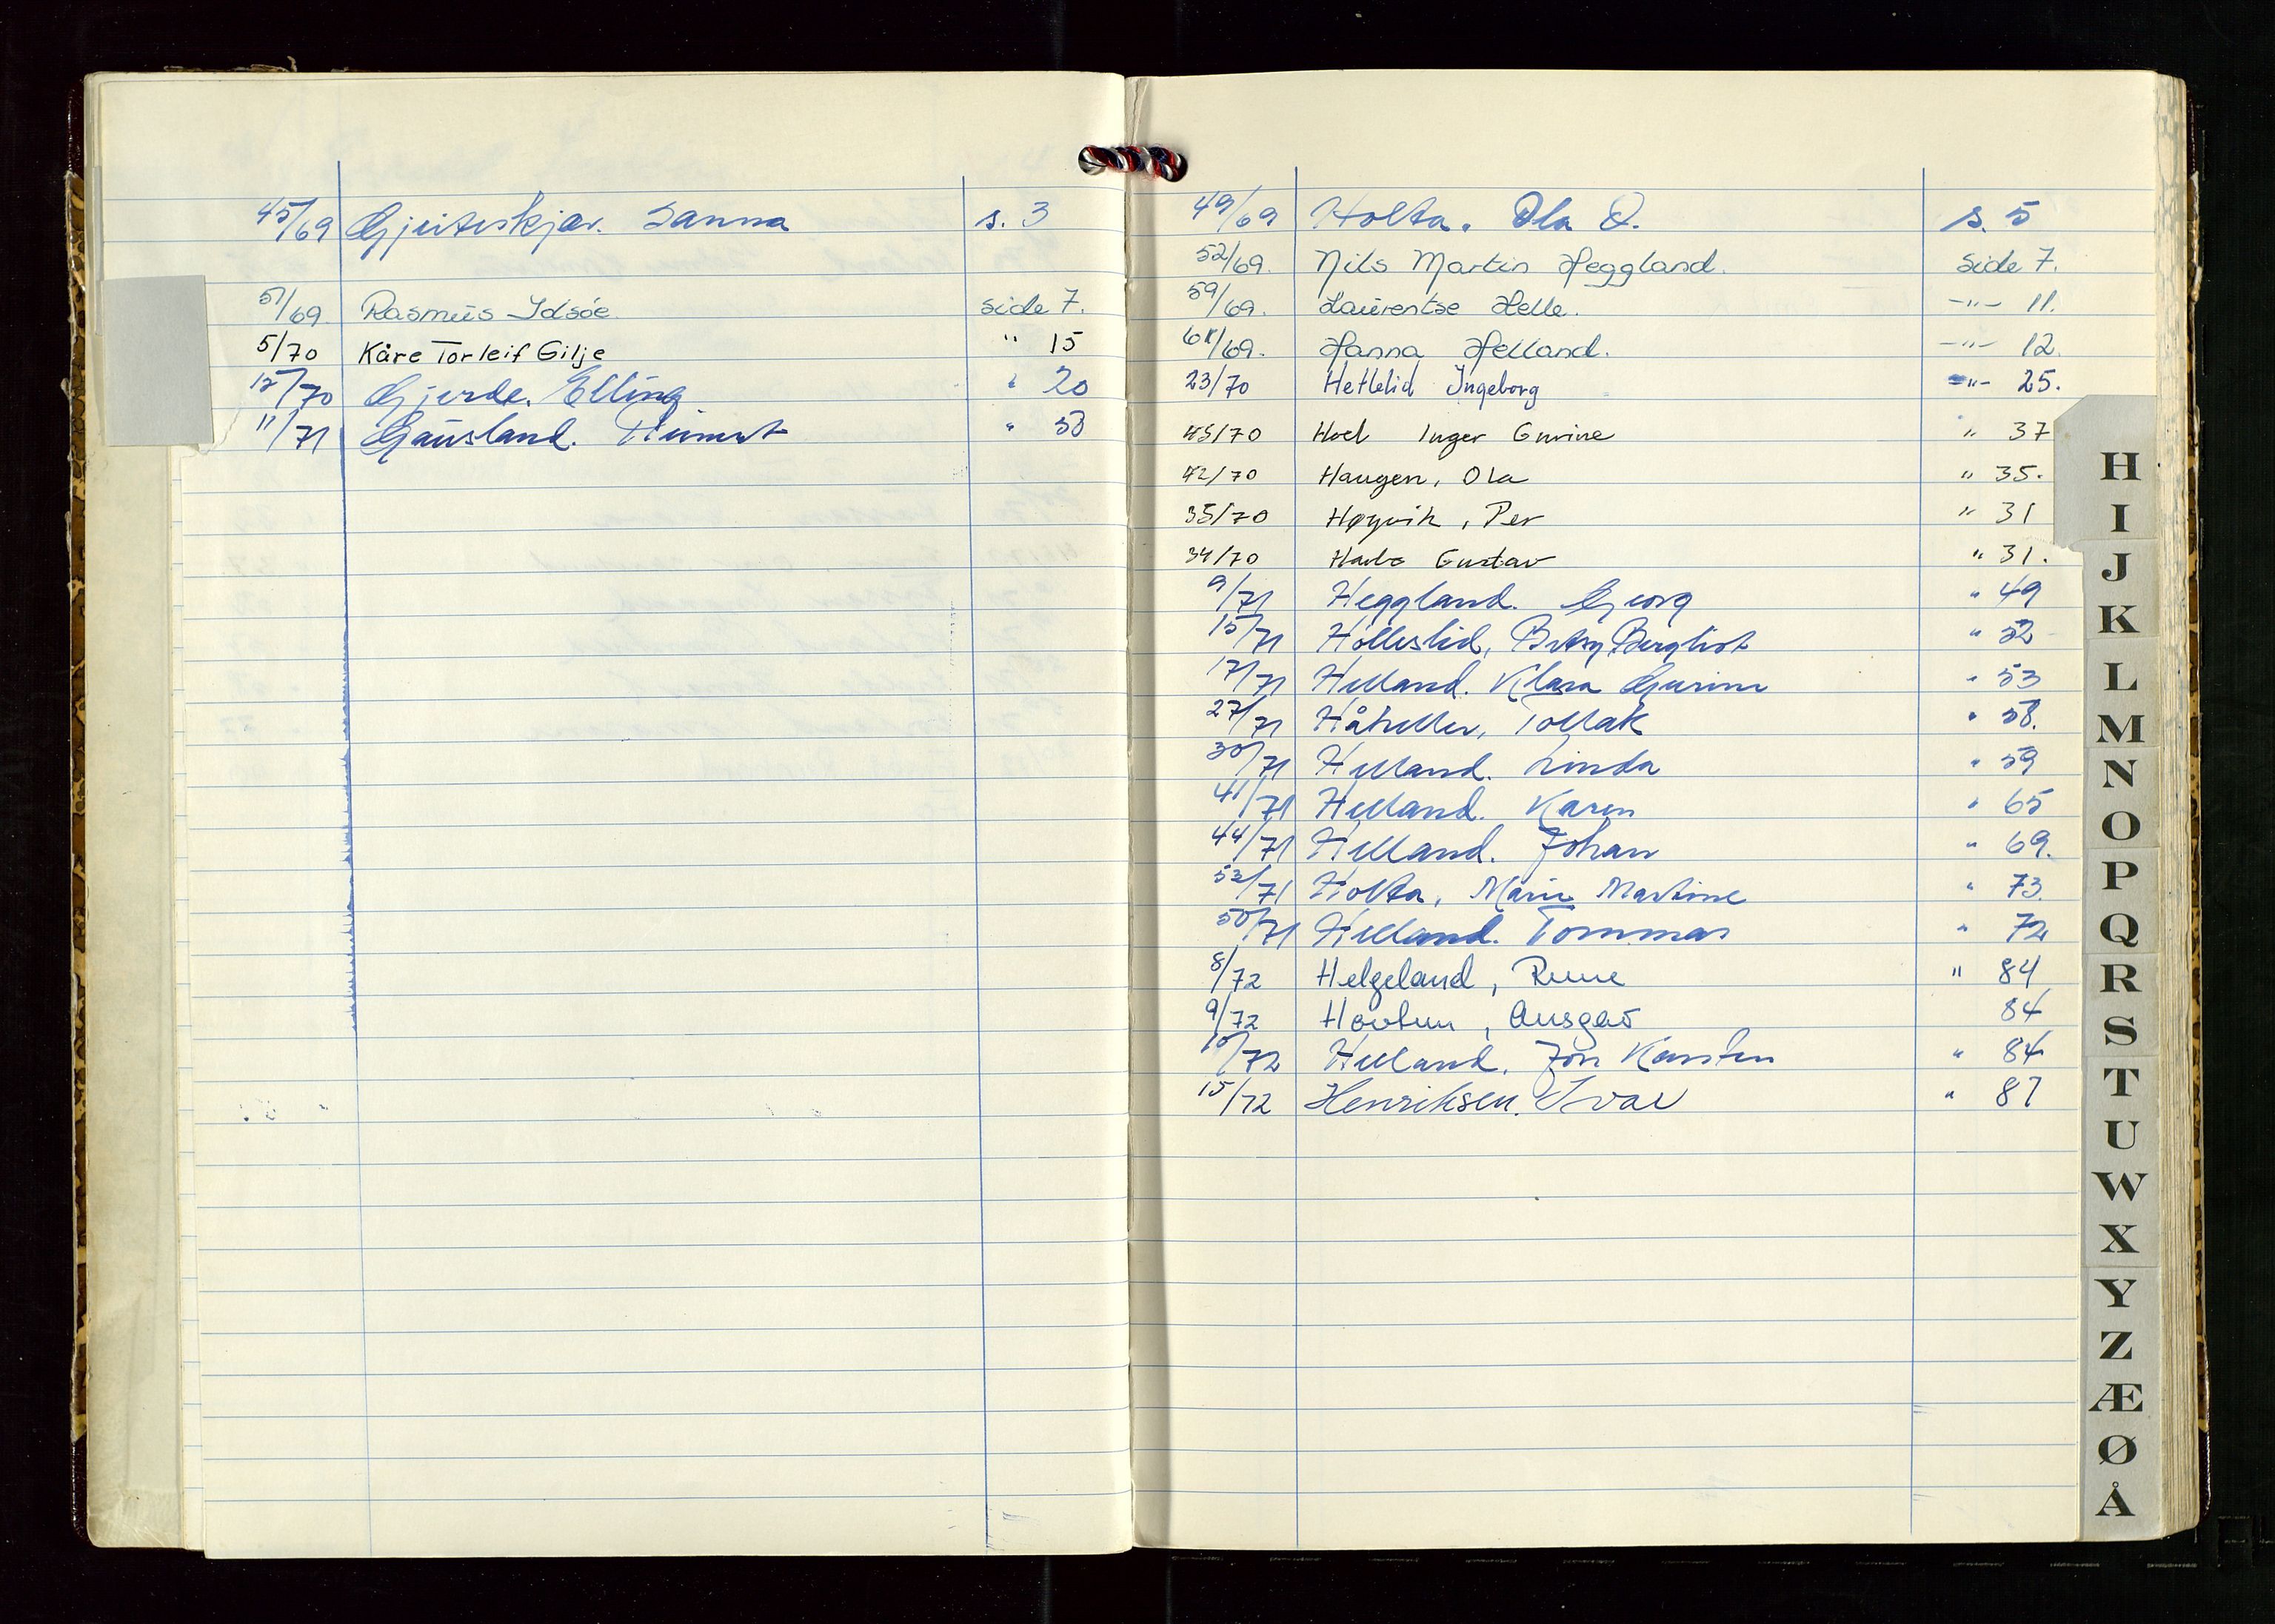 45/69 Gjeiteskjær. Sanna s. 3
51/69 Rasmus Idsøe. side 7.
5/70 Kåre Torleif Gilje " 15
12/70 Gjerde. Elling " 20
11/71 Gausland. " 50
49/69 Holta. Ola O. s. 5
52/69. Nils Martin Heggland. side 7.
59/69. Laurentse Helle. -"- 11.
61/69. Hanna Helland. -"- 12.
23/70 Hetlelid Ingeborg -"- 25.
45/70 Hoel Inger Gurine " 37
42/70 Haugen, Ola " 35.
35/70 Høyvik, Per " 31
34/70 Gustav " 31.
9/71 Heggland. Georg " 49
15/71 Holleslid, Betsy Bergliot " 52
17/71 Helland. Klara Gurine " 53
27/71 Håheller, Tollak " 58.
30/71 Helland. Linda " 59
41/71 Helland. Karen " 65
44/71 Helland. Johan " 69.
52/71 Holta, Marie Martine " 73.
50/71 Helland. Tommas " 72
8/72 Helgeland, Rune " 84
9/72 Hovtun, Ansgar 84
10/72 Helland. Jon Karsten " 84
15/72 Henriksen. Ivar " 87
H
I
J
K
L
M
N
O
P
Q
R
S
T
U
W
X
Y
Z
Æ
Ø
Å